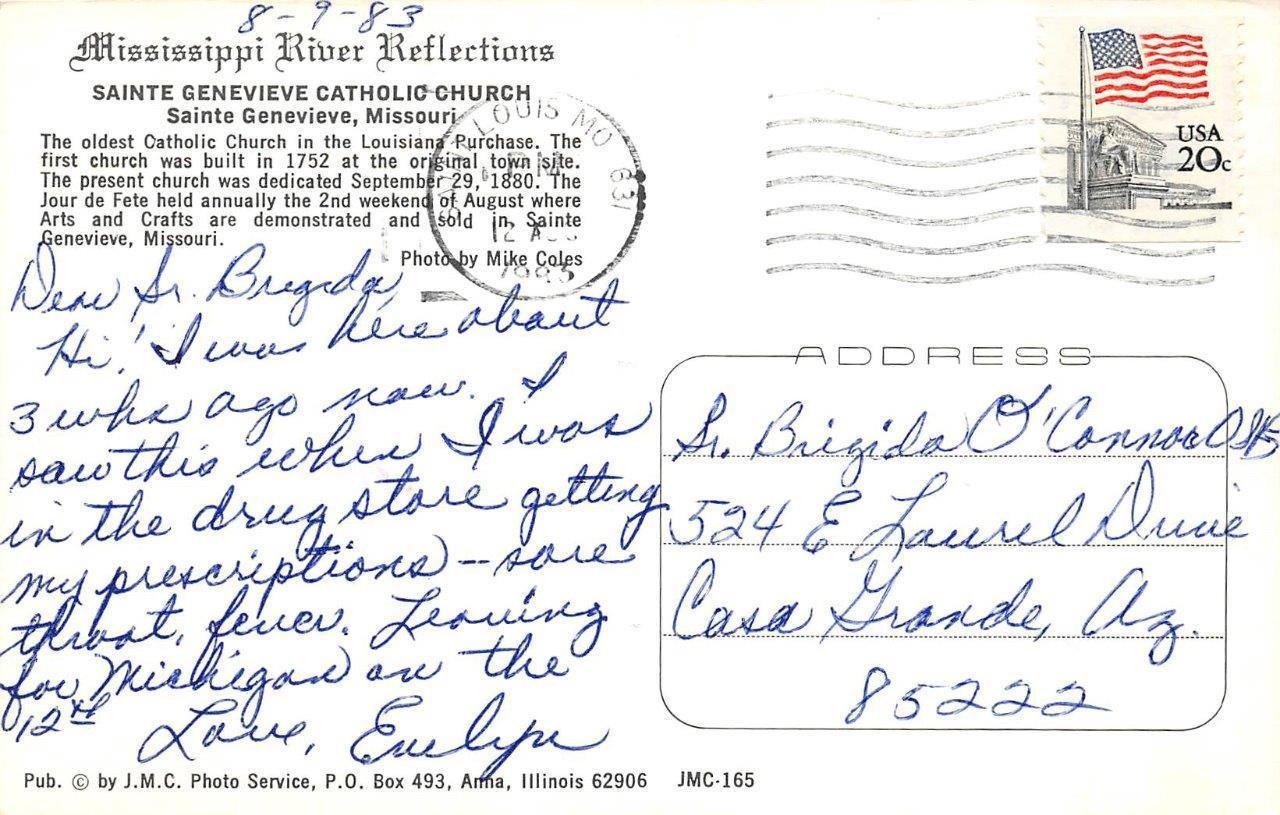 8-9-83
Mississippi River Reflections
SAINTE GENEVIEVE CATHOLIC CHURCH
Sainte Genevieve, Missouri
The oldest Catholic Church in the Louisiana Purchase. The
first church was built in 1752 at the original town site.
The present church was dedicated September 29, 1880. The
Jour de Fete held annually the 2nd weekend of August where
Arts and Crafts are demonstrated and sold in Sainte
Genevieve, Missouri.
Photo by Mike Coles
LOUIS MO 631
PM
12 AUG
1983
USA
20c
Dear Sr. Brigida,
Hi! I was here about
3 wks ago now. I
saw this when I was
in the drug store getting
my prescriptions -- sore
throat, fever. Leaving
for Michigan on the
12th
Love, Evelyn
ADDRESS
Sr. Brigida O'Connor OSB
524 E Laurel Drive
Casa Grande, Az.
85222
Pub. © by J.M.C. Photo Service, P.O. Box 493, Anna, Illinois 62906 JMC-165